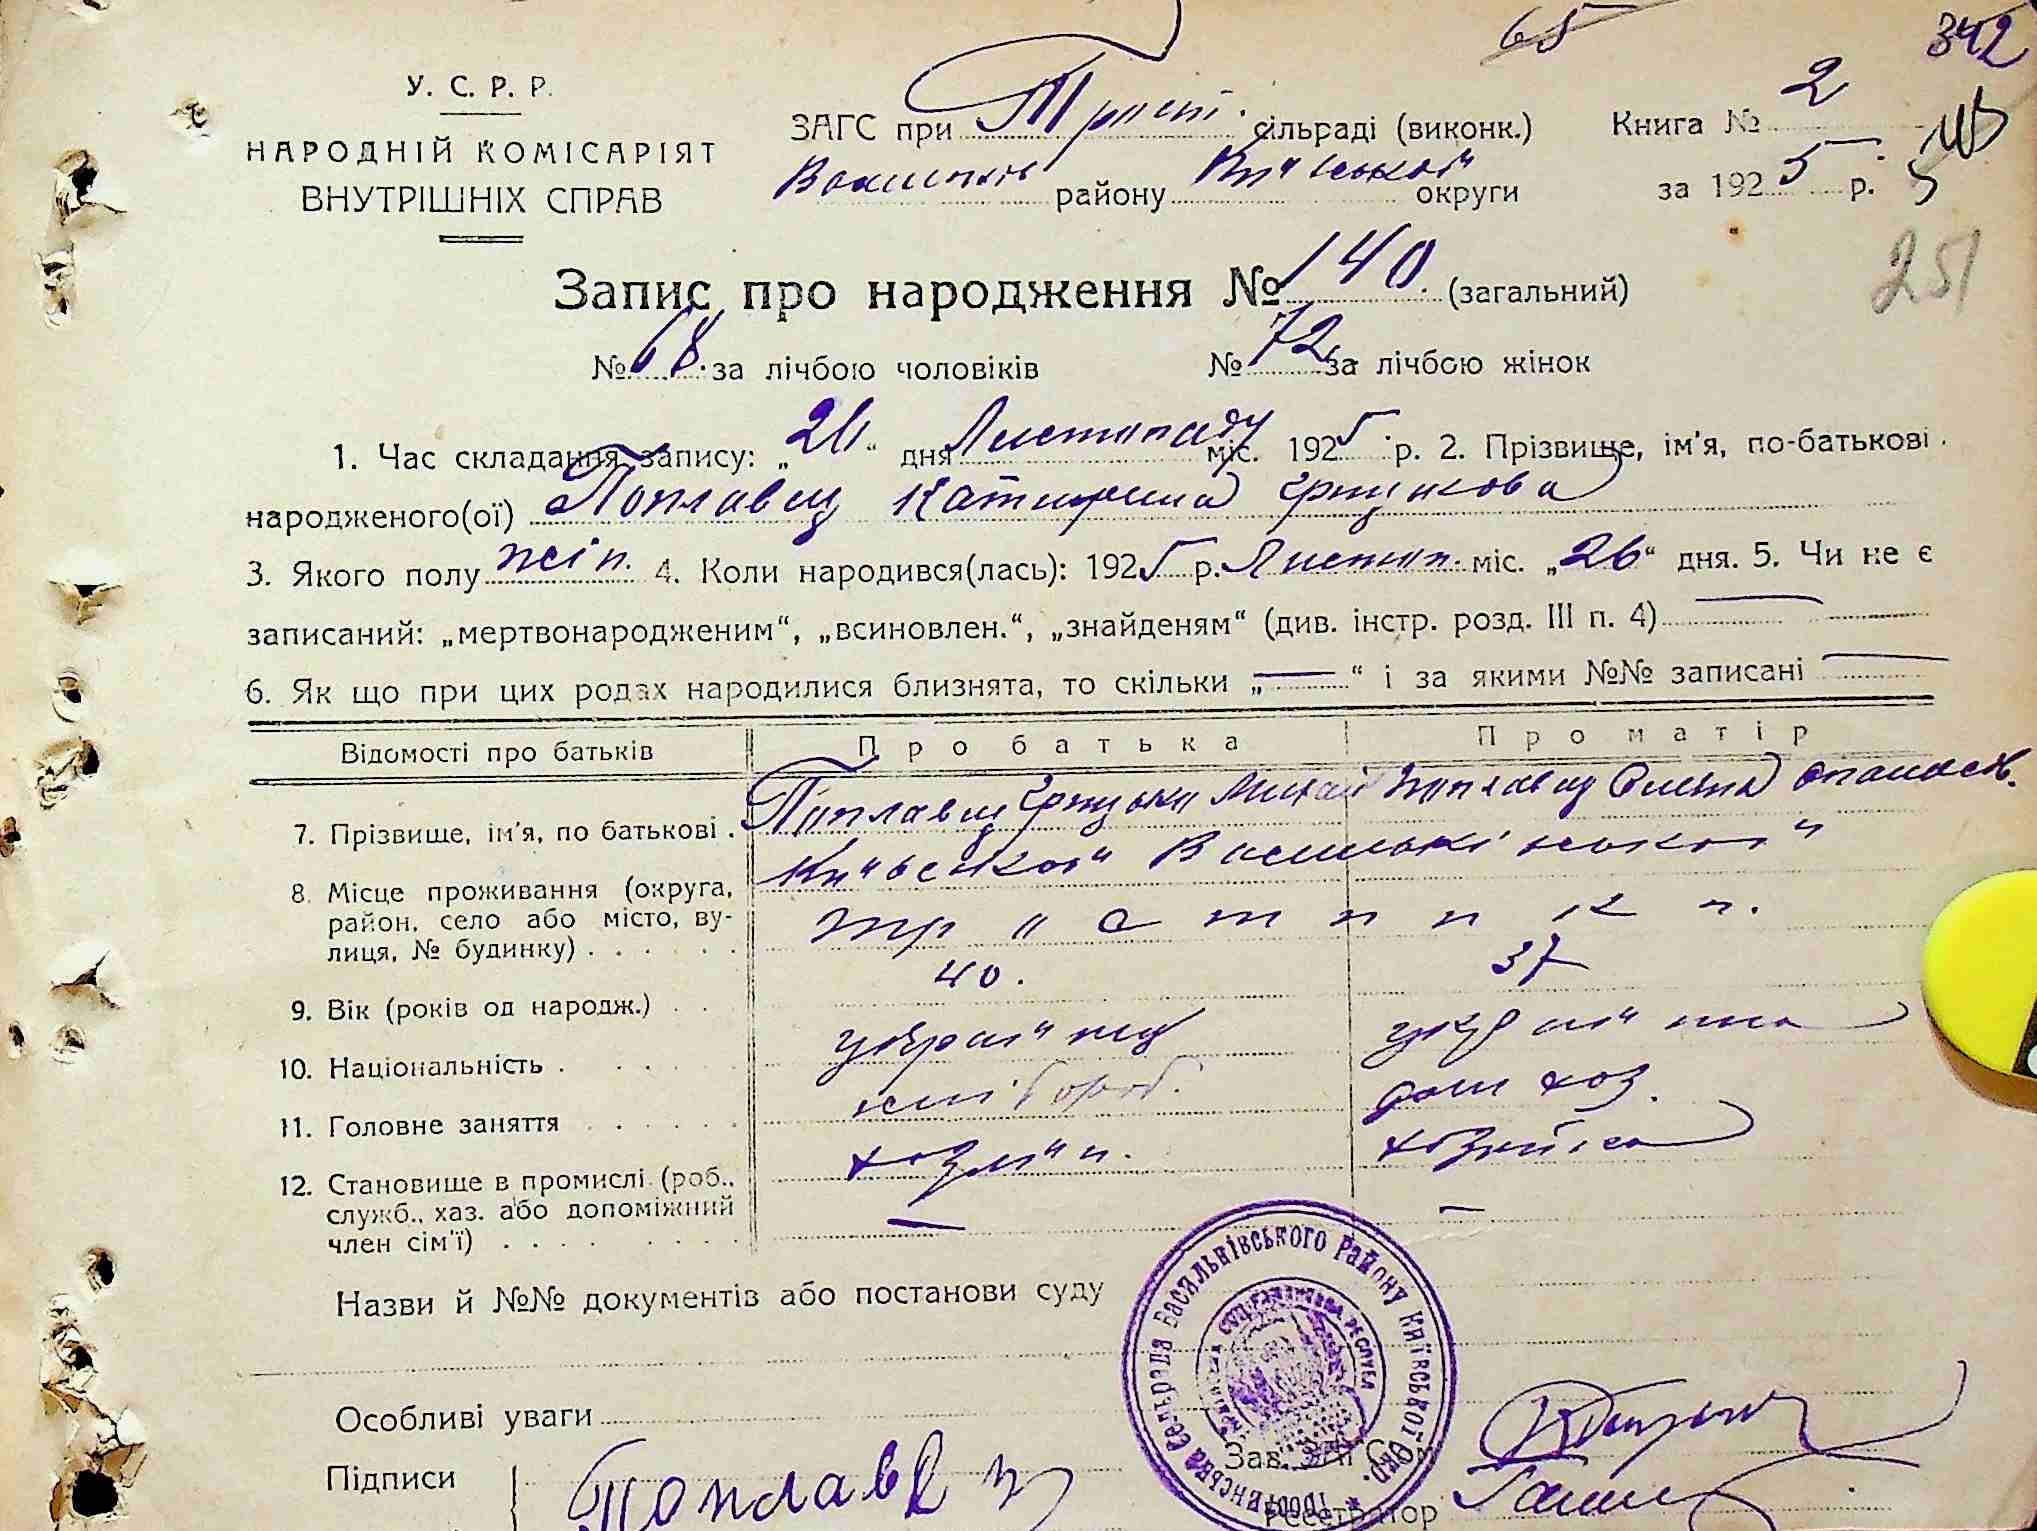 65
342
У. С. Р. Р.
НАРОДНІЙ КОМІСАРІЯТ
ВНУТРІШНІХ СПРАВ
ЗАГС при Трост. сільраді (виконк.)
Книга № 2
району Київської округи
за 1925 р.
251
Запис про народження № 140. (загальний)
№ 68. за лічбою чоловіків № 72 за лічбою жінок
1. Час складання запису: „26“ дня Листопаду міс. 1925 р. 2. Прізвище, ім'я, по-батькові
народженого(ої) Поплавец Катирина
3. Якого полу жін. 4. Коли народився(лась): 1925 р. Листоп. міс. „26“ дня. 5. Чи не є
записаний: „мертвонародженим“, „всиновлен.“, „знайденям“ (див. інстр. розд. III п. 4)
6. Як що при цих родах народилися близнята, то скільки „ “ і за якими №№ записані
Відомості про батьків Про батька Про матір
7. Прізвище, ім'я, по батькові . Поплавец Поплавец
8. Місце проживання (округа, Київської Васильківської
район, село або місто, ву-
лиця, № будинку) . . . . . .
9. Вік (років од народж.) . . 40. 37
10. Національність . україне українка
11. Головне заняття хлібороб. дом хоз.
12. Становище в промислі (роб., хозяїн. хозяйка
служб., хаз. або допоміжний
член сім'ї)
Назви й №№ документів або постанови суду
Особливі уваги
Підписи Поплавец
Зав. ЗАГС'ом
Реєстратор
Васильківського району Київської Окр.